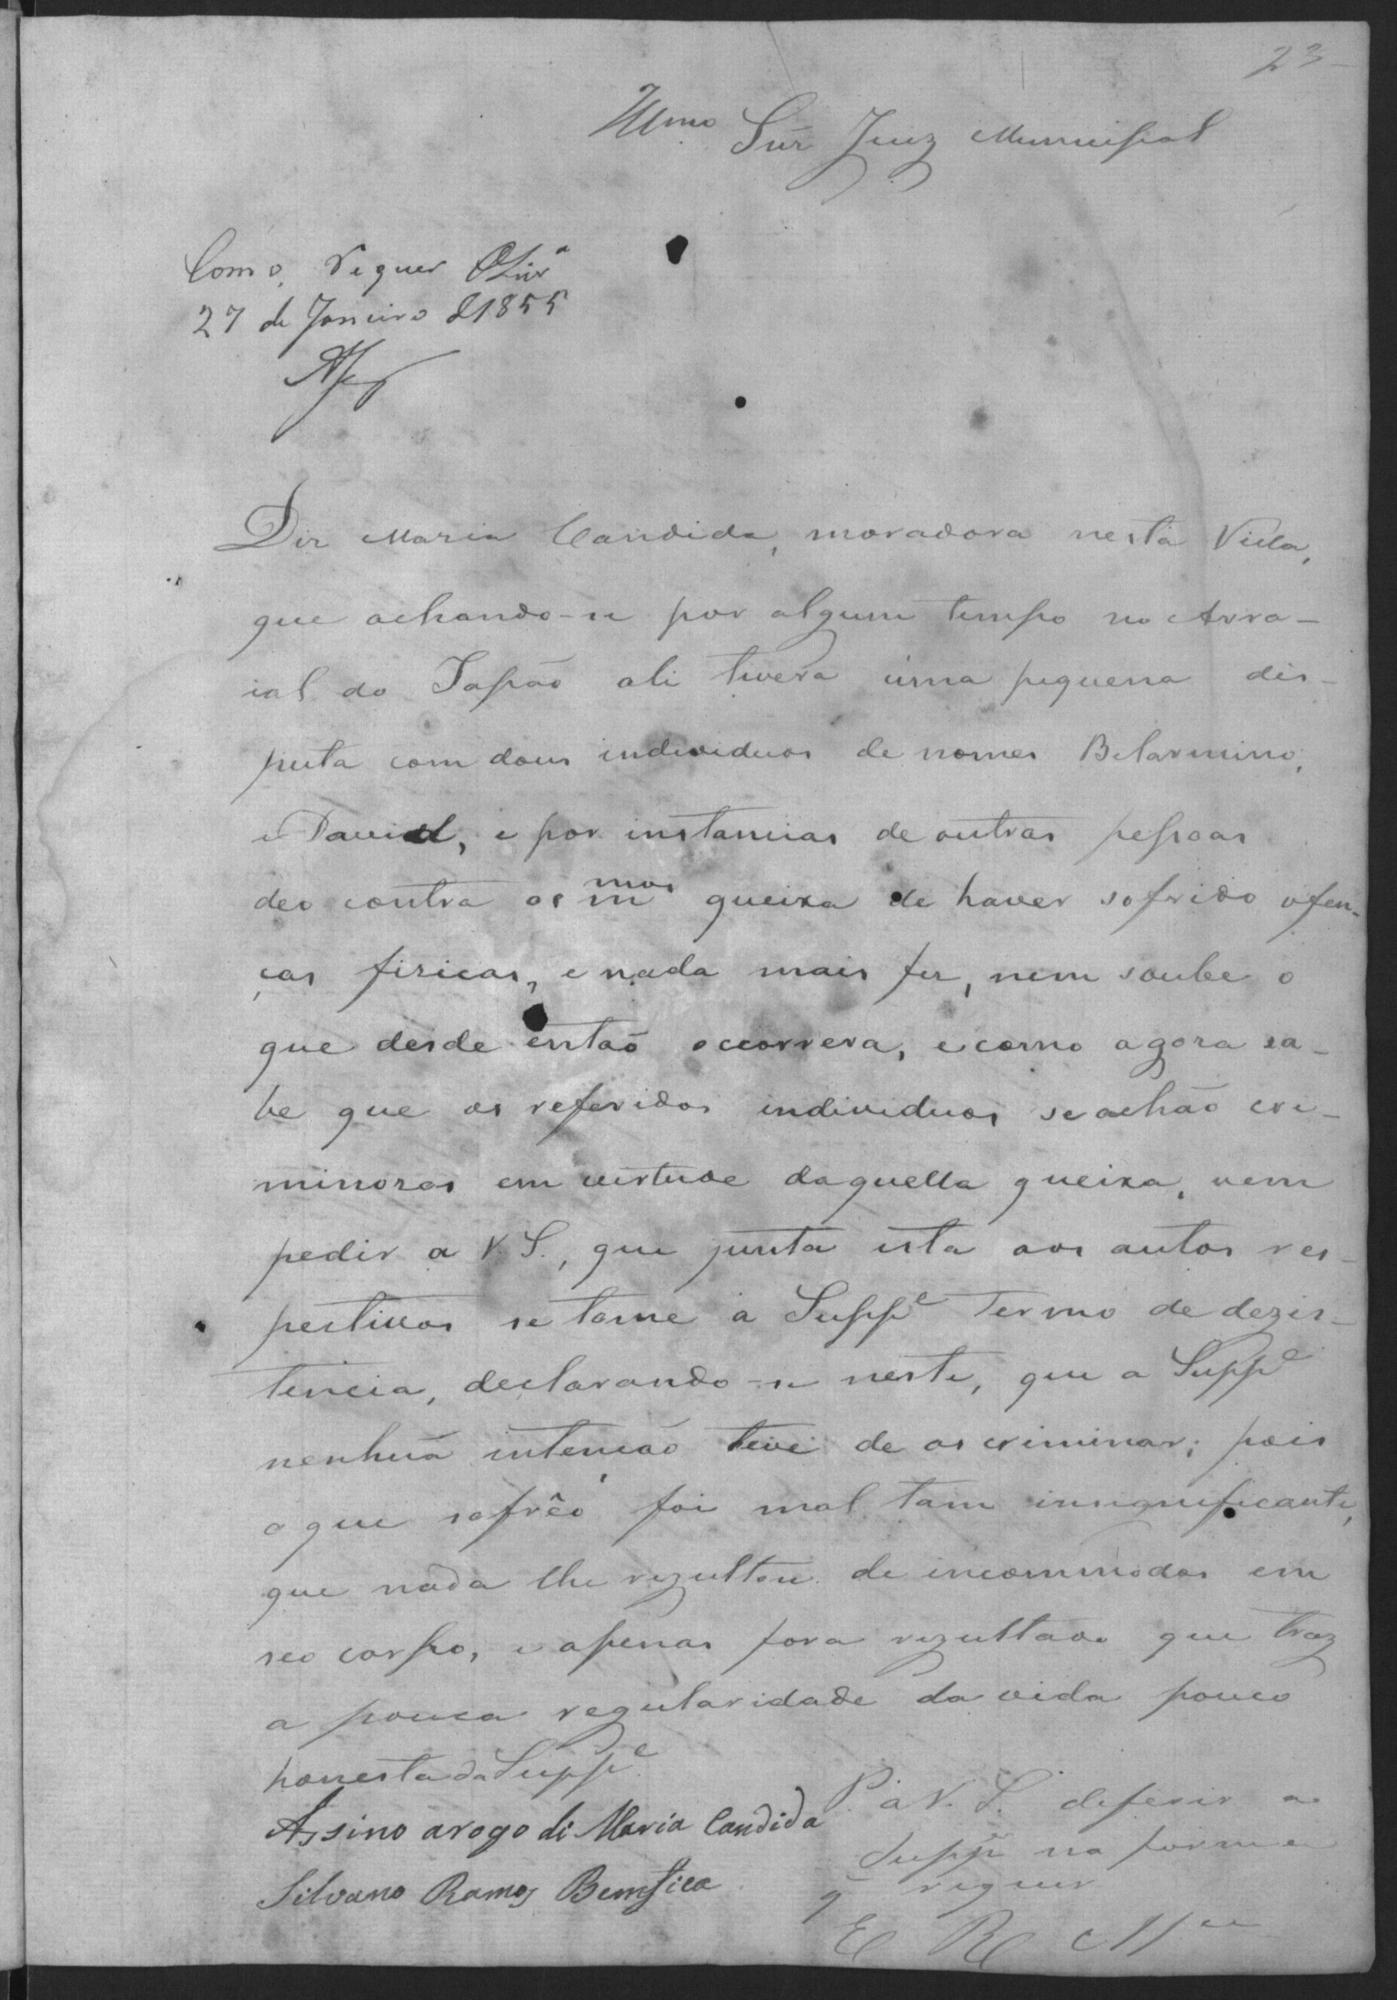 23
Illmo Snr Juiz Municipal
Como requer Olivrª
27 de Janeiro d1855
Diz Maria Candida, moradora nesta Villa,
que achando-se por algum tempo no Arra-
ial do Japão ali tivera uma pequena dis-
puta com dous individuos de nomes Belarmino,
e David, e por instancias de outras pessoas
deo contra os mmos queixa de haver sofrido ofen-
ças fizicas, e nada mais fez, nem soube o
que desde então occorrera, e como agora sa-
be que os referidos individuos se achão cri-
minozos em virtude daquella queixa, vem
pedir a V. S., que junta esta aos autos res-
pectivos se tome a Suppe termo de dezis-
tencia, declarando-se neste, que a Suppe
nenhuã intencão teve de os criminar; pois
o que sofrêo foi mal tam insignificante,
que nada lhe rezultou de incommodos em
seo corpo, e apenas fora rezultado que traz
a pouca regularidade da vida pouco
honesta da Suppe
Assino arogo di Maria Candida
Silvano Ramos Bemfica
P. a V. S. deferir a
Suppe na forma
q̃ requer
E R Mce